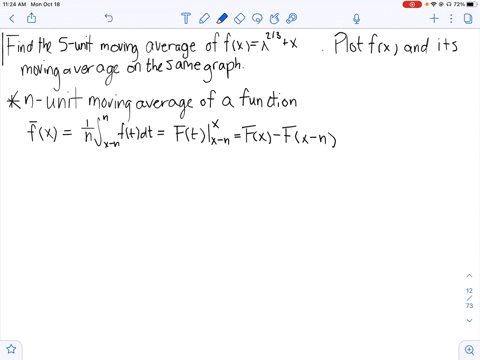 11:24 AM Mon Oct 18
72%
Find the 5-unit moving average of f(x)= x^{2/3} +x . Plot f(x) and its
moving average on the same graph.
* n-unit moving average of a function
f̄(x) = 1/n ∫_{x-n}^{n} f(t)dt = F(t)|_{x-n}^{x} = F(x) - F(x-n)
12
/
73